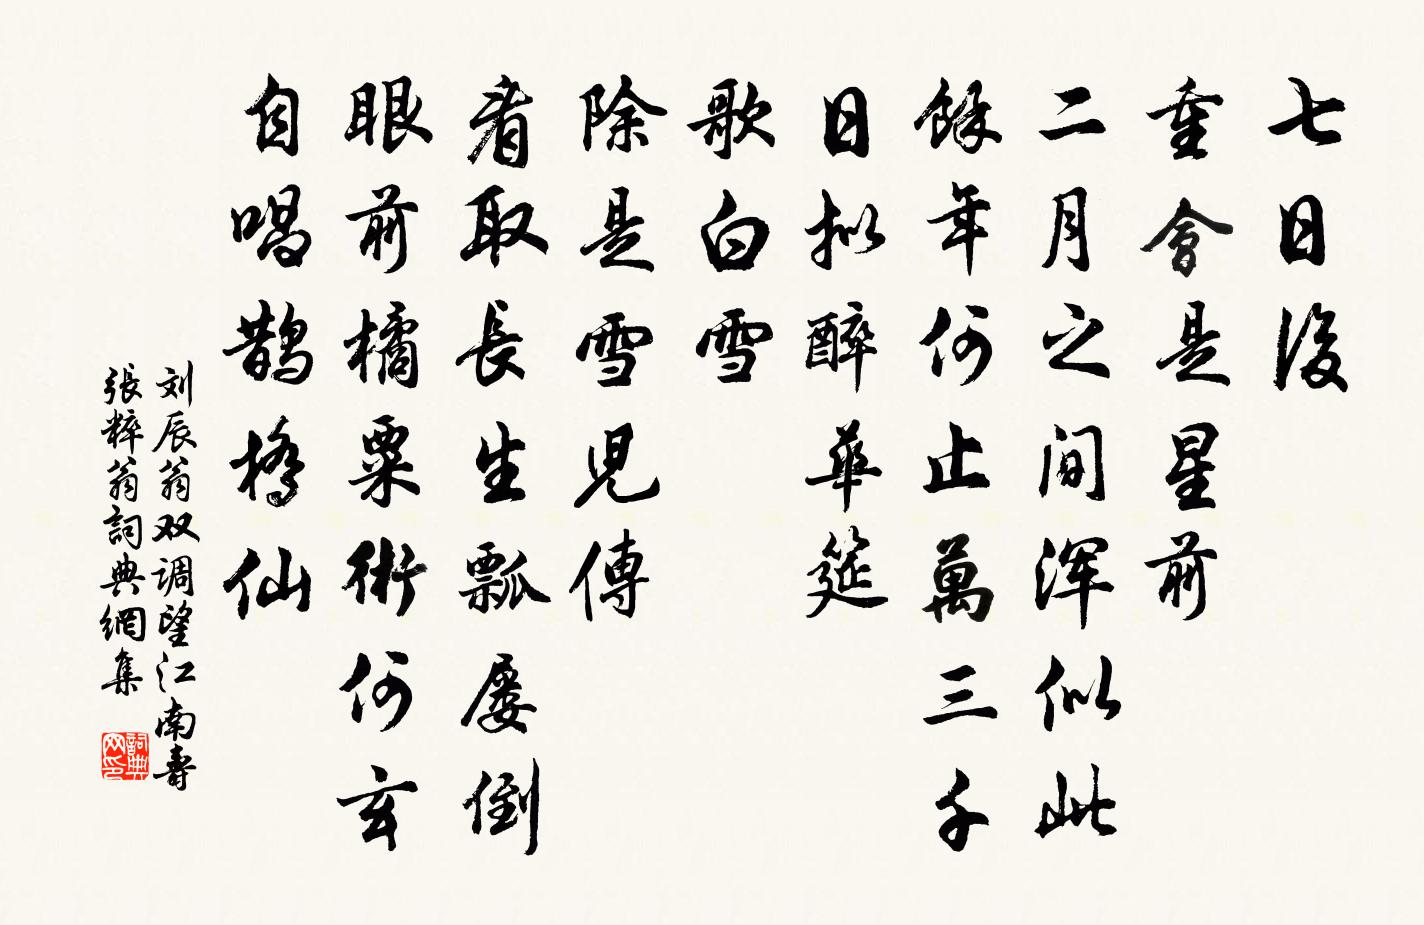 七日後
重會是星前
二月之间渾似此
餘年何止萬三千
日拟醉華筵
歌白雪
除是雪児傳
看取長生瓢屡倒
眼前橘粟術何玄
自唱鵲橋仙
刘辰翁双调望江南寿
張粹翁詞典網集
詞典网印